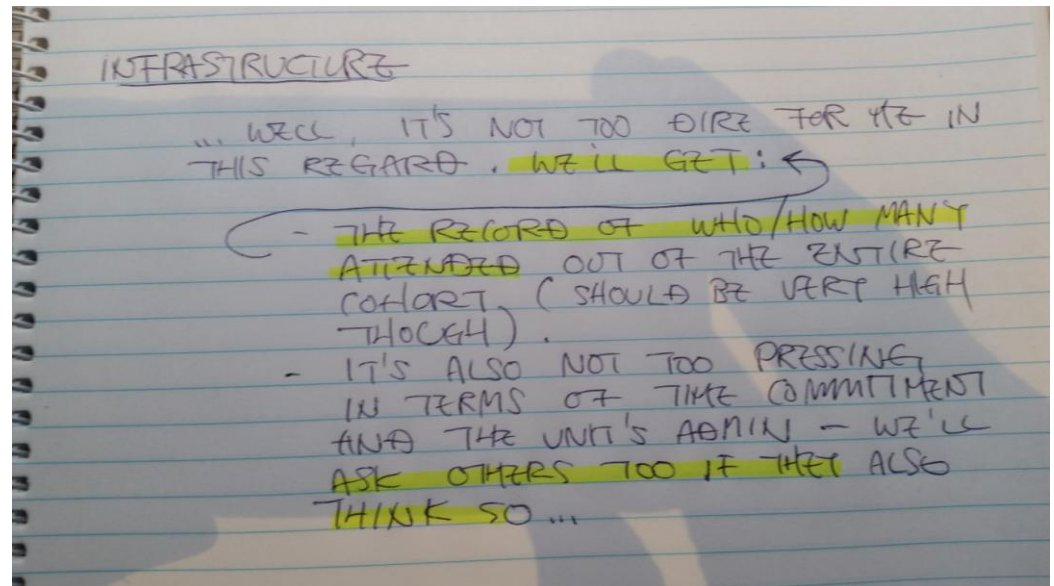 INFRASTRUCTURE
... WELL, IT'S NOT TOO DIRE FOR ME IN
THIS REGARD. WE'LL GET:
- THE RECORD OF WHO/HOW MANY
ATTENDED OUT OF THE ENTIRE
COHORT, (SHOULD BE VERY HIGH
THOUGH).
- IT'S ALSO NOT TOO PRESSING
IN TERMS OF TIME COMMITMENT
AND THE UNIT'S ADMIN - WE'LL
ASK OTHERS TOO IF THEY ALSO
THINK SO ...